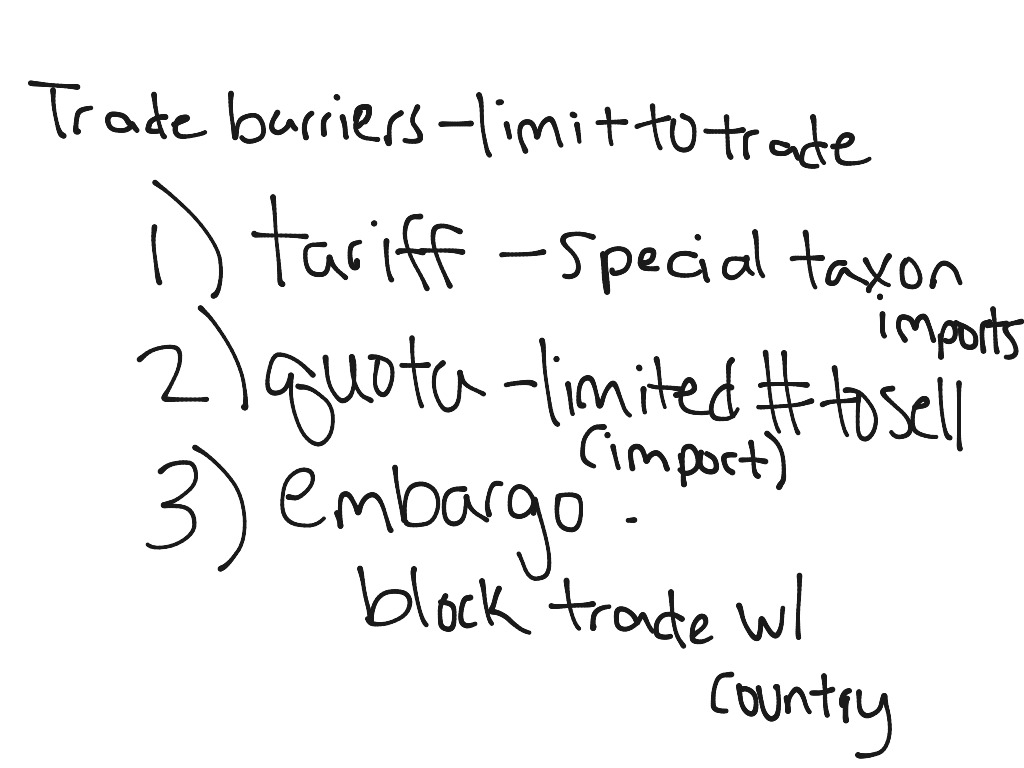 Trade barriers - limit to trade
1) tariff - special tax on
imports
2) quota - limited # to sell
(import)
3) embargo -
block trade w/
country